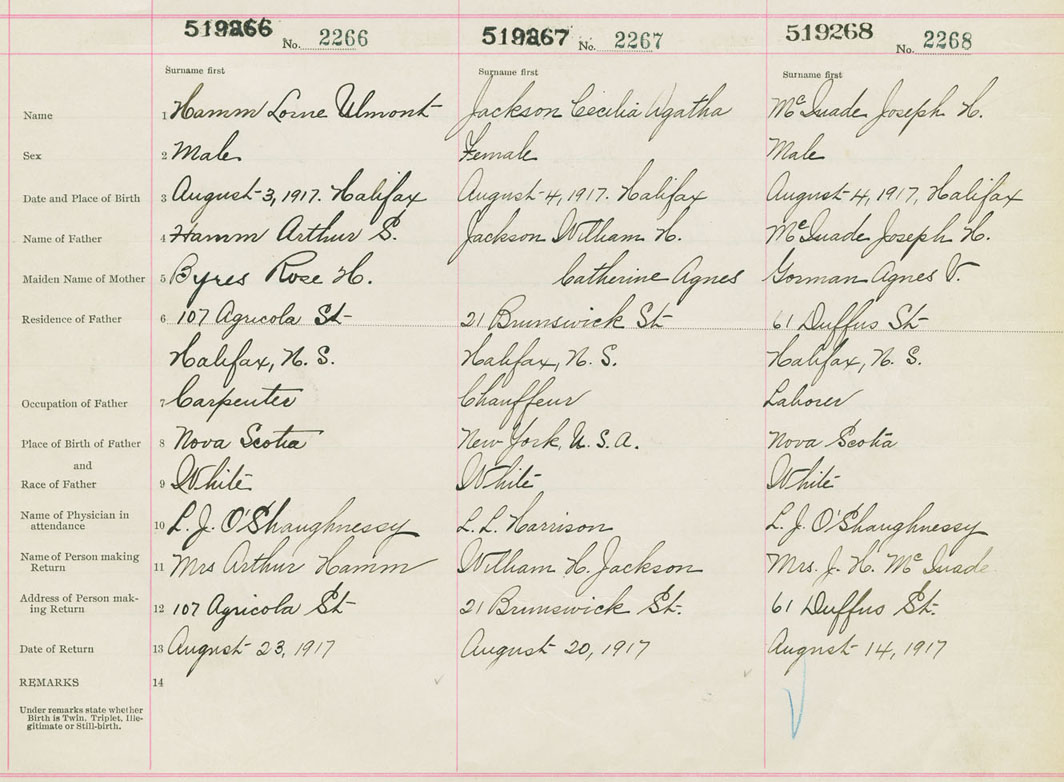 519266 No. 2266 519267 No. 2267 519268 No. 2268
Surname first Surname first Surname first
Name 1 Hamm Lorne Ulmont Jackson Cecilia Agatha McQuade Joseph H.
Sex 2 Male Female Male
Date and Place of Birth 3 August 3, 1917. Halifax August 4, 1917. Halifax August 4, 1917, Halifax
Name of Father 4 Hamm Arthur S. Jackson William H. McQuade Joseph H.
Maiden Name of Mother 5 Byres Rose H. Catherine Agnes Gorman Agnes V.
Residence of Father 6 107 Agricola St 21 Brunswick St 61 Duffus St
Halifax, N. S. Halifax, N. S. Halifax, N. S.
Occupation of Father 7 Carpenter Chauffeur Laborer
Place of Birth of Father 8 Nova Scotia New York, U. S. A. Nova Scotia
and
Race of Father 9 White White White
Name of Physician in
attendance 10 L. J. O'Shaughnessy L. L. Harrison L. J. O'Shaughnessy
Name of Person making
Return 11 Mrs Arthur Hamm William H. Jackson Mrs. J. H. McQuade
Address of Person mak-
ing Return 12 107 Agricola St 21 Brunswick St. 61 Duffus St.
Date of Return 13 August 23, 1917 August 20, 1917 August 14, 1917
REMARKS 14
Under remarks state whether
Birth is Twin, Triplet, Ille-
gitimate or Still-birth.